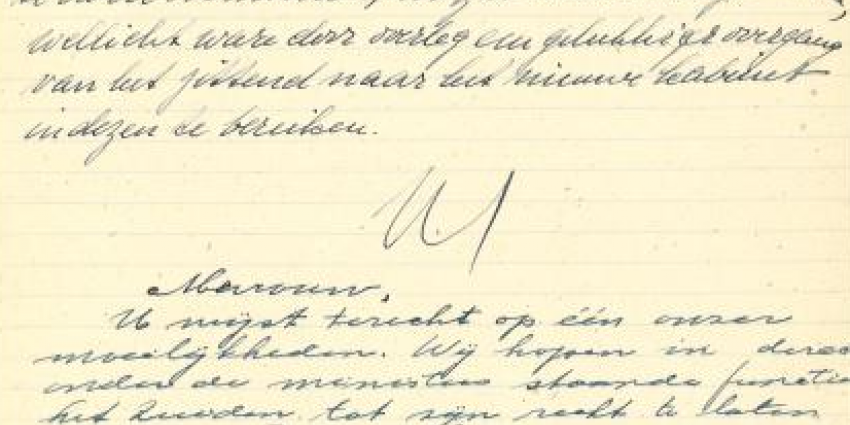 wellicht ware door overleg een gelukkiger overgang
van het zittend naar het nieuwe kabinet
in dezen te bereiken.
Mevrouw,
U wijst terecht op één onzer
moeilijkheden. Wij hopen in deze
onder de ministers staande functie
het Zuiden tot zijn recht te laten